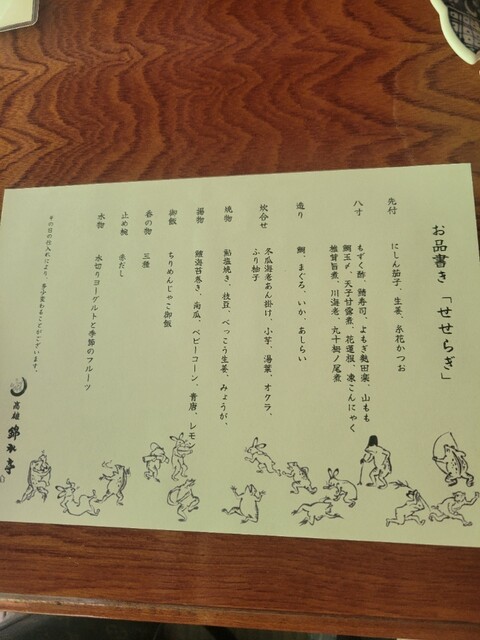 お品書き「せせらぎ」
先付
にしん茄子、生姜、糸花かつお
八寸
もずく酢、鯖寿司、よもぎ麩田楽、山もも
鯛玉〆、天子甘露煮、花蓮根、凍こんにゃく
雑賀旨煮、川海老、丸十梅ノ尾煮
造り
鯛、まぐろ、いか、あしらい
炊合せ
冬瓜海老あん掛け、小芋、湯葉、オクラ、
ふり柚子
焼物
鮎塩焼き、枝豆、べっこう生姜、みょうが、
揚物
鱧海苔巻き、南瓜、ベビーコーン、青唐、レモン
御飯
ちりめんじゃこ御飯
香の物
三種
止め椀
赤だし
水物
水切りヨーグルトと季節のフルーツ
その日の仕入れにより、多少変わることがございます。
高雄
錦水亭